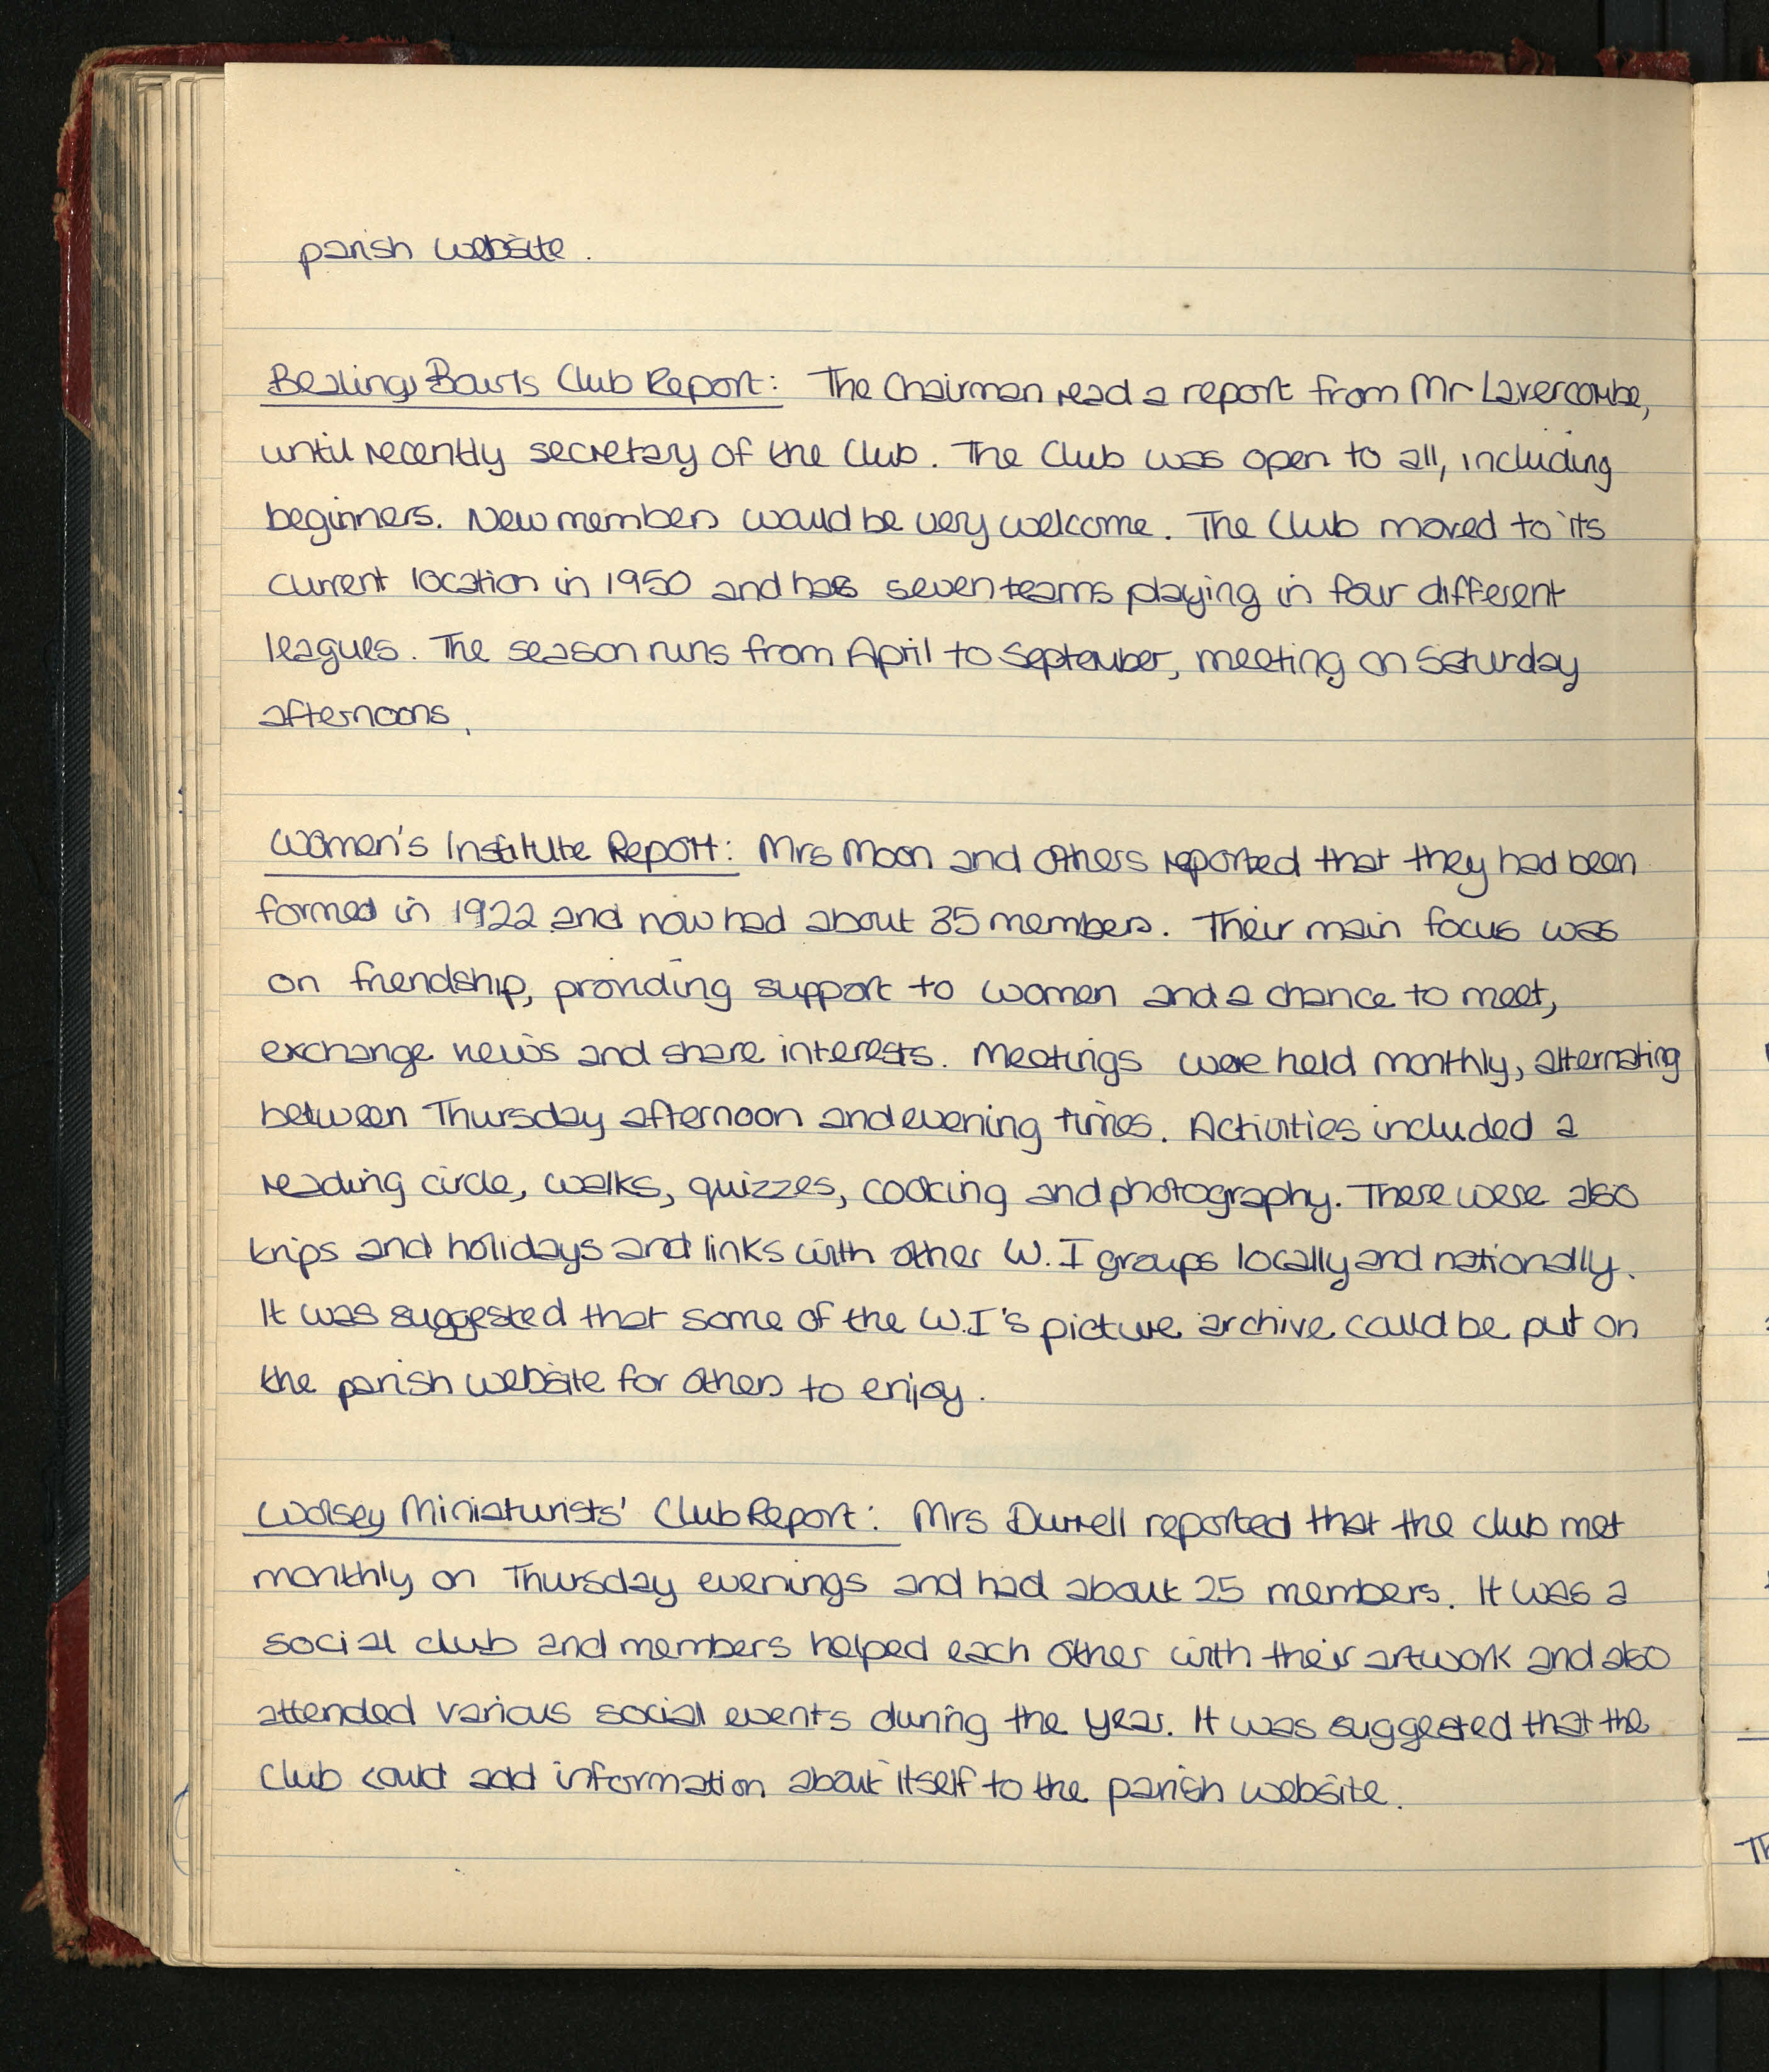 parish website.
Bealings Bowls Club Report: The Chairman read a report from Mr Lavercombe,
until recently secretary of the Club. The Club was open to all, including
beginners. New members would be very welcome. The Club moved to its
current location in 1950 and has seven teams playing in four different
leagues. The season runs from April to September, meeting on Saturday
afternoons.
Women's Institute Report: Mrs Moon and others reported that they had been
formed in 1922 and now had about 35 members. Their main focus was
on friendship, providing support to women and a chance to meet,
exchange news and share interests. Meetings were held monthly, alternating
between Thursday afternoon and evening times. Activities included a
reading circle, walks, quizzes, cooking and photography. There were also
trips and holidays and links with other W.I groups locally and nationally.
It was suggested that some of the W.I's picture archive could be put on
the parish website for others to enjoy.
Wolsey Miniaturists' Club Report: Mrs Durrell reported that the club met
monthly on Thursday evenings and had about 25 members. It was a
social club and members helped each other with their artwork and also
attended various social events during the year. It was suggested that the
Club could add information about itself to the parish website.
Th